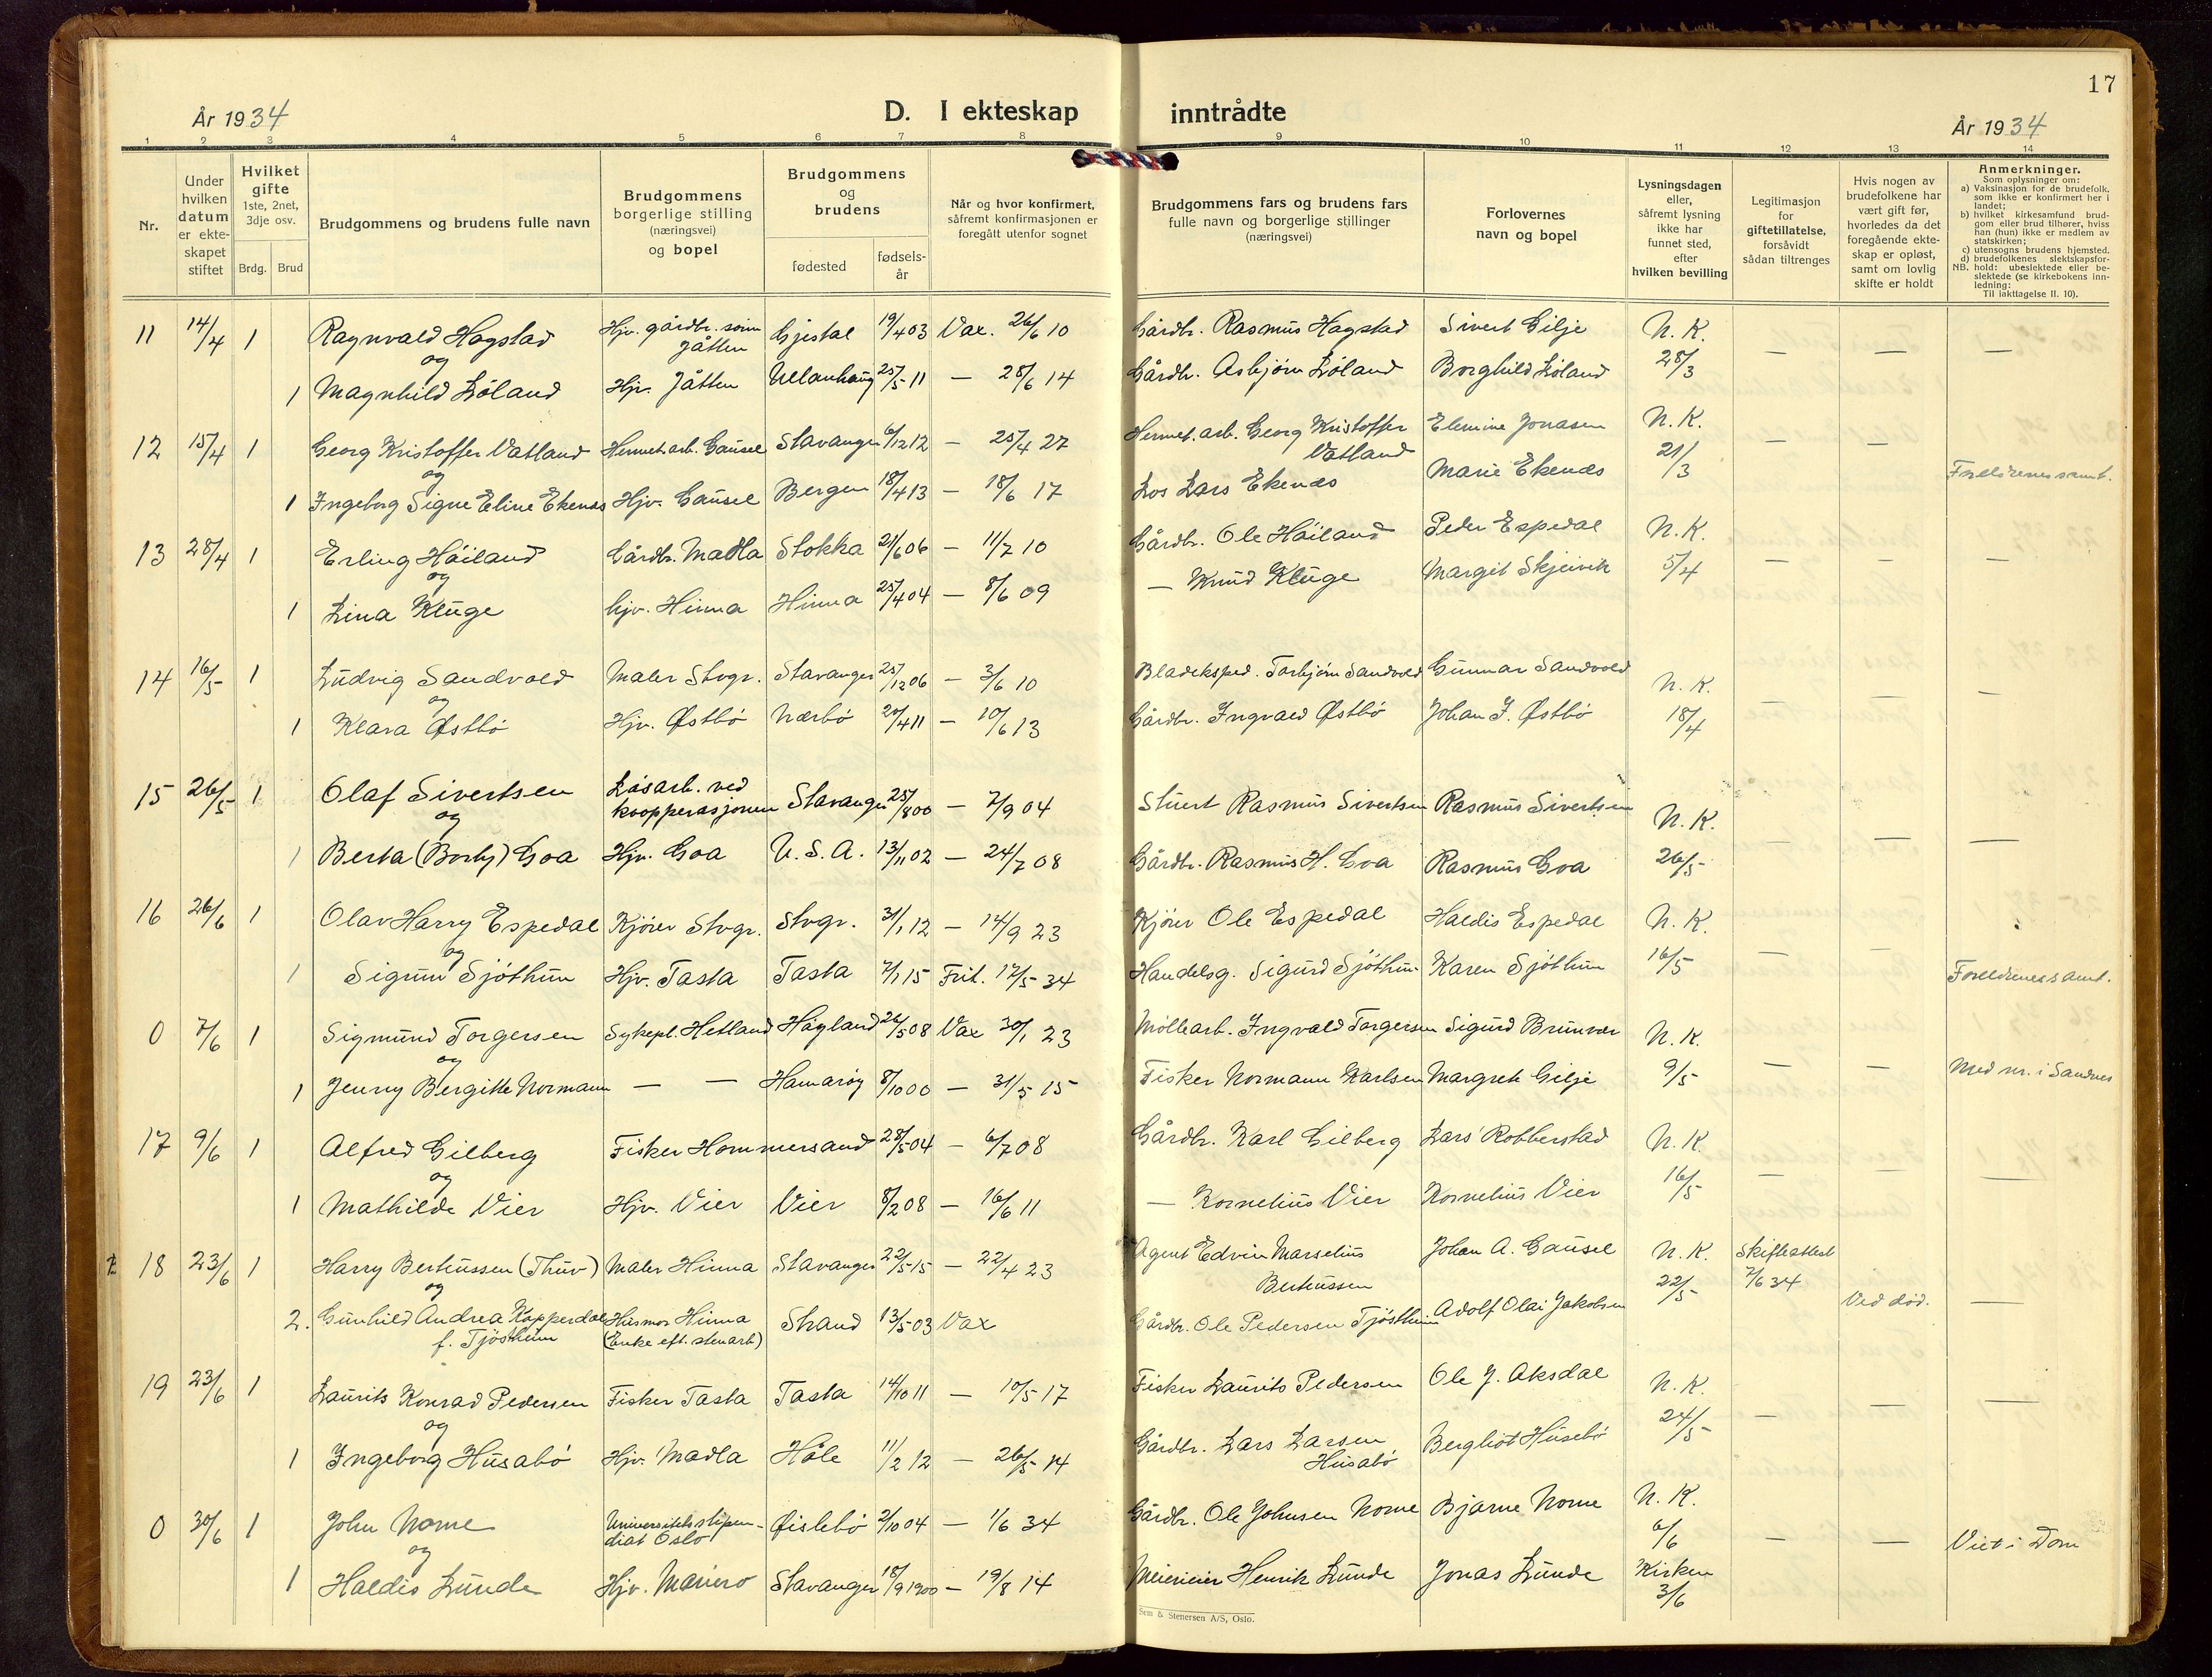 17
År 1934
D. I ekteskap inntrådte
År 1934
1 2 3 4 5 6 7 8 9 10 11 12 13 14
Nr.
Under hvilken datum er ekteskapet stiftet
Hvilket gifte 1ste, 2net, 3dje osv.
Brdg. Brud
Brudgommens og brudens fulle navn
Brudgommens borgerlige stilling (næringsvei) og bopel
Brudgommens og brudens
fødested
fødselsår
Når og hvor konfirmert, såfremt konfirmasjonen er foregått utenfor sognet
Brudgommens fars og brudens fars fulle navn og borgerlige stillinger (næringsvei)
Forlovernes navn og bopel
Lysningsdagen eller, såfremt lysning ikke har funnet sted, efter hvilken bevilling
Legitimasjon for giftetillatelse, forsåvidt sådan tiltrenges
Hvis nogen av brudefolkene har vært gift før, hvorledes da det foregående ekteskap er opløst, samt om lovlig skifte er holdt
Anmerkninger.
Som oplysninger om:
a) Vaksinasjon for de brudefolk. som ikke er konfirmert her i landet;
b) hvilket kirkesamfund brudgom eller brud tilhører, hviss han (hun) ikke er medlem av statskirken;
c) utensogns brudens hjemsted.
d) brudefolkenes slektskapsforhold: ubeslektede eller beslektede (se kirkebokens innledning:
NB.
Til iakttagelse II. 10).
11 14/4 1 Ragnvald Hagstad Hjv. gårdbr. sønn Jåtten Gjestal 19/4 03 Vax. 26/6 10 Gårdbr. Rasmus Hagstad Sivert Gilje N. K. — — —
og
1 Magnhild Løland Hjv. Jåtten Ullanhaug 25/5 11 — 28/6 14 Gårdbr. Asbjørn Løland Borghild Løland 28/3
12 15/4 1 Georg Kristoffer Vatland Hermet. arb. Gausel Stavanger 6/12 12 — 25/4 27 Hermet. arb. Georg Kristoffer Vatland Elemine Jonasen N. K. — —
og
1 Ingeborg Signe Eline Ekenes Hjv. Gausel Bergen 18/4 13 — 18/6 17 Los Lars Ekenes Marie Ekenes 21/3 Foreldrenes samt.
13 28/4 1 Erling Håiland Gårdbr. Madla Stokka 21/6 06 — 11/7 10 Gårdbr. Ole Håiland Peder Espedal N. K. — — —
og
1 Lina Kluge hjv. Hinna Hinna 25/4 04 — 8/6 09 — Knud Kluge Margit Skjeivik 5/4
14 16/5 1 Ludvig Sandvold Maler Stvgr. Stavanger 25/12 06 — 3/6 10 Bladeksped. Torbjørn Sandvold Gunnar Sandvold N. K. — — —
og
1 Klara Østbø Hjv. Østbø Nærbø 20/4 11 — 10/6 13 Gårdbr. Ingvald Østbø Johan J. Østbø 18/4
15 26/5 1 Olaf Sivertsen Løsarb. ved koopperasjonen Stavanger 25/8 00 — 7/9 04 Stuert Rasmus Sivertsen Rasmus Sivertsen N. K. — — —
og
1 Berta (Borty) Goa Hjv. Goa U. S. A. 13/11 02 — 24/7 08 Gårdbr. Rasmus H. Goa Rasmus Goa 26/5
16 26/6 1 Olav Harry Espedal Kjører Stvgr. Stvgr. 31/1 12 — 14/9 23 Kjører Ole Espedal Haldis Espedal N. K. — —
og
1 Sigrun Sjøthun Hjv. Tasta Tasta 7/1 15 Frit. 17/5 34 Handelsg. Sigurd Sjøthun Karen Sjøthun 16/5 Foreldrenes samt.
0 7/6 1 Sigmund Torgersen Sykepl. Hetland Høyland 26/5 08 Vax 30/1 23 Møllearb. Ingvald Torgersen Sigurd Brunvær N. K. — —
og
1 Jenny Bergitte Normann — — Hamarøy 8/10 00 — 31/5 15 Fisker Normann Karlsen Margrete Gilje 9/5 Med nr. i Sandnes
17 9/6 1 Alfred Gilberg Fisker Hommersand 28/5 04 — 6/7 08 Gårdbr. Karl Gilberg Lars Robberstad N. K. — — —
og
1 Mathilde Vier Hjv. Vier Vier 8/2 08 — 16/6 11 — Kornelius Vier Kornelius Vier 16/5
18 23/6 1 Harry Bertussen (Thuv) Maler Hinna Stavanger 22/5 15 — 22/4 23 Agent Edvin Marselius Bertussen Johan A. Gausel N. K. Skifteattest
og 22/5 7/6 34
2. Gunhild Andrea Kopperdal f. Tjøsthun Husmor Hinna (Enke eft. stenarb) Strand 13/5 03 Vax Gårdbr. Ole Pedersen Tjøsthun Adolf Olai Jakobsen Ved død. —
19 23/6 1 Laurits Konrad Pedersen Fisker Tasta Tasta 14/10 11 — 10/5 17 Fisker Laurits Pedersen Ole J. Aksdal N. K. — — —
og
1 Ingeborg Husabø Hjv. Madla Håle 11/2 12 — 26/5 14 Gårdbr. Lars Larsen Husabø Bergliot Husebø 24/5
0 30/6 1 John Nome Universitetsstipendiat Oslo Øislebø 2/10 04 — 1/6 34 Gårdbr. Ole Johnsen Nome Bjarne Nome N. K. 6/6 — — Viet i Dom
og
1 Haldis Lunde Hjv. Mariero Stavanger 18/9 1900 — 19/8 14 Meierieier Henrik Lunde Jonas Lunde Kirken 3/6
Sem & Stenersen A/S, Oslo.